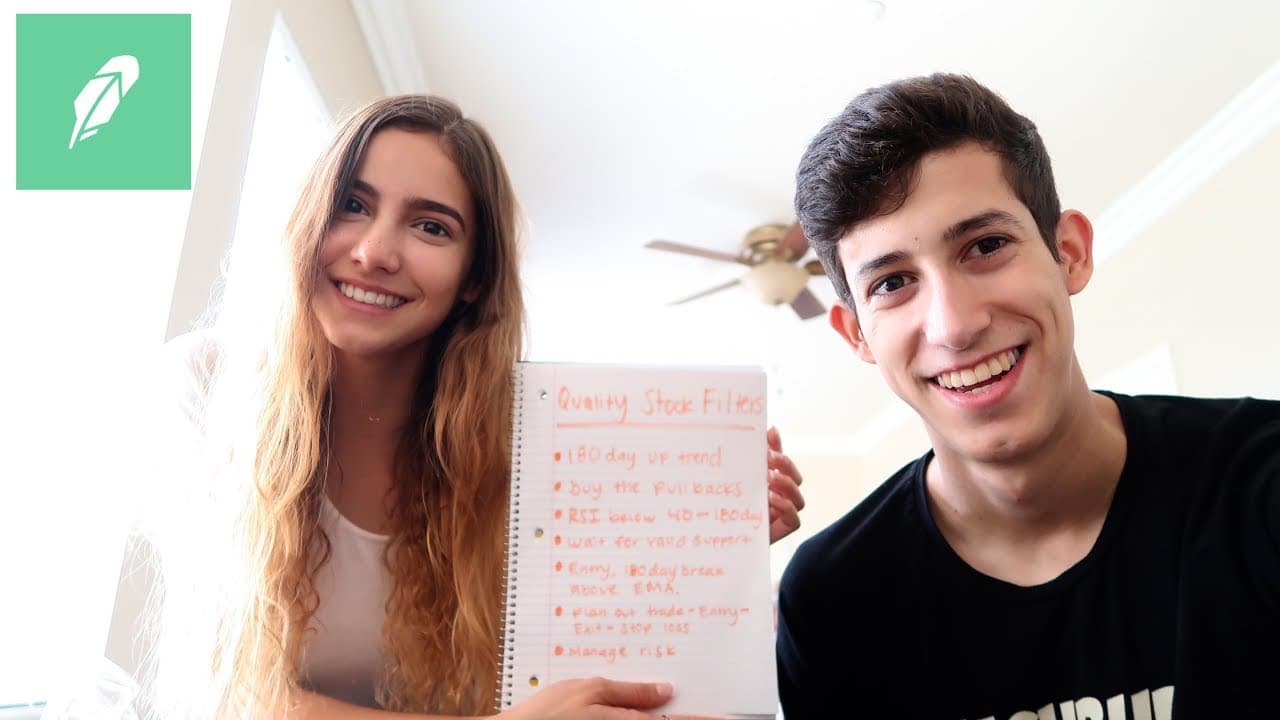 Quality Stock Filters
• 180 day up trend
• Buy the Pullbacks
• RSI below 40 - 180day
• Wait for valid support
• Entry, 180day break
Above EMA.
• Plan out trade - Entry -
Exit - Stop loss
• Manage risk